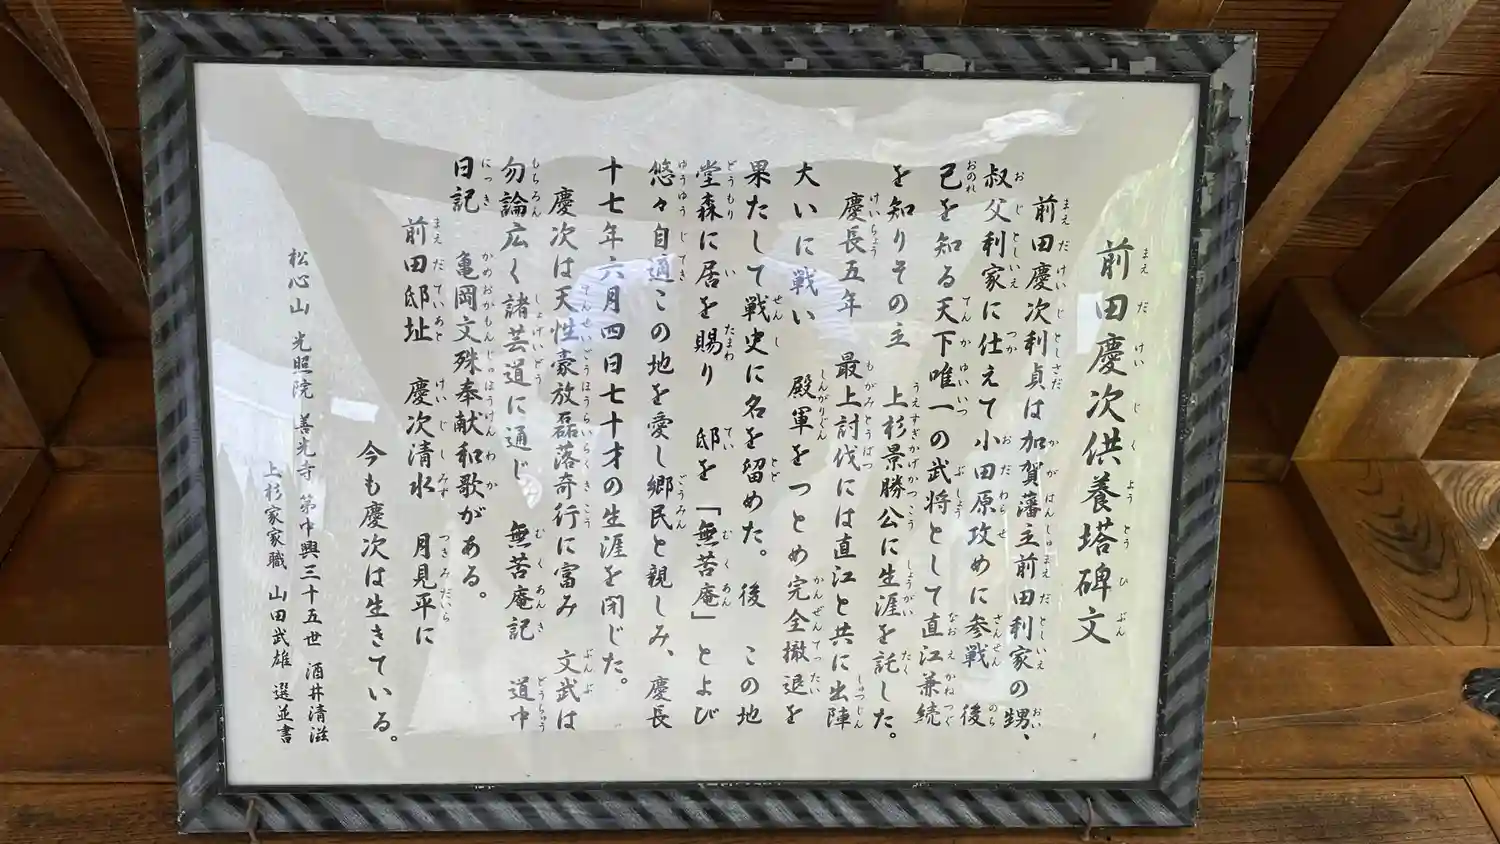 前田慶次供養塔碑文
前田慶次利貞は加賀藩主前田利家の甥、
叔父利家に仕えて小田原攻めに参戦 後
己を知る天下唯一の武将として直江兼続
を知りその主 上杉景勝公に生涯を託した。
慶長五年 最上討伐には直江と共に出陣
大いに戦い 殿軍をつとめ完全撤退を
果たして戦史に名を留めた。後 この地
堂森に居を賜り 邸を「無苦庵」とよび
悠々自適この地を愛し郷民と親しみ、慶長
十七年六月四日七十才の生涯を閉じた。
慶次は天性豪放磊落奇行に富み 文武は
勿論広く諸芸道に通じ 無苦庵記 道中
日記 亀岡文殊奉献和歌がある。
前田邸址 慶次清水 月見平に
今も慶次は生きている。
松心山 光照院 善光寺 第中興三十五世 酒井清滋
上杉家家職 山田武雄 選並書